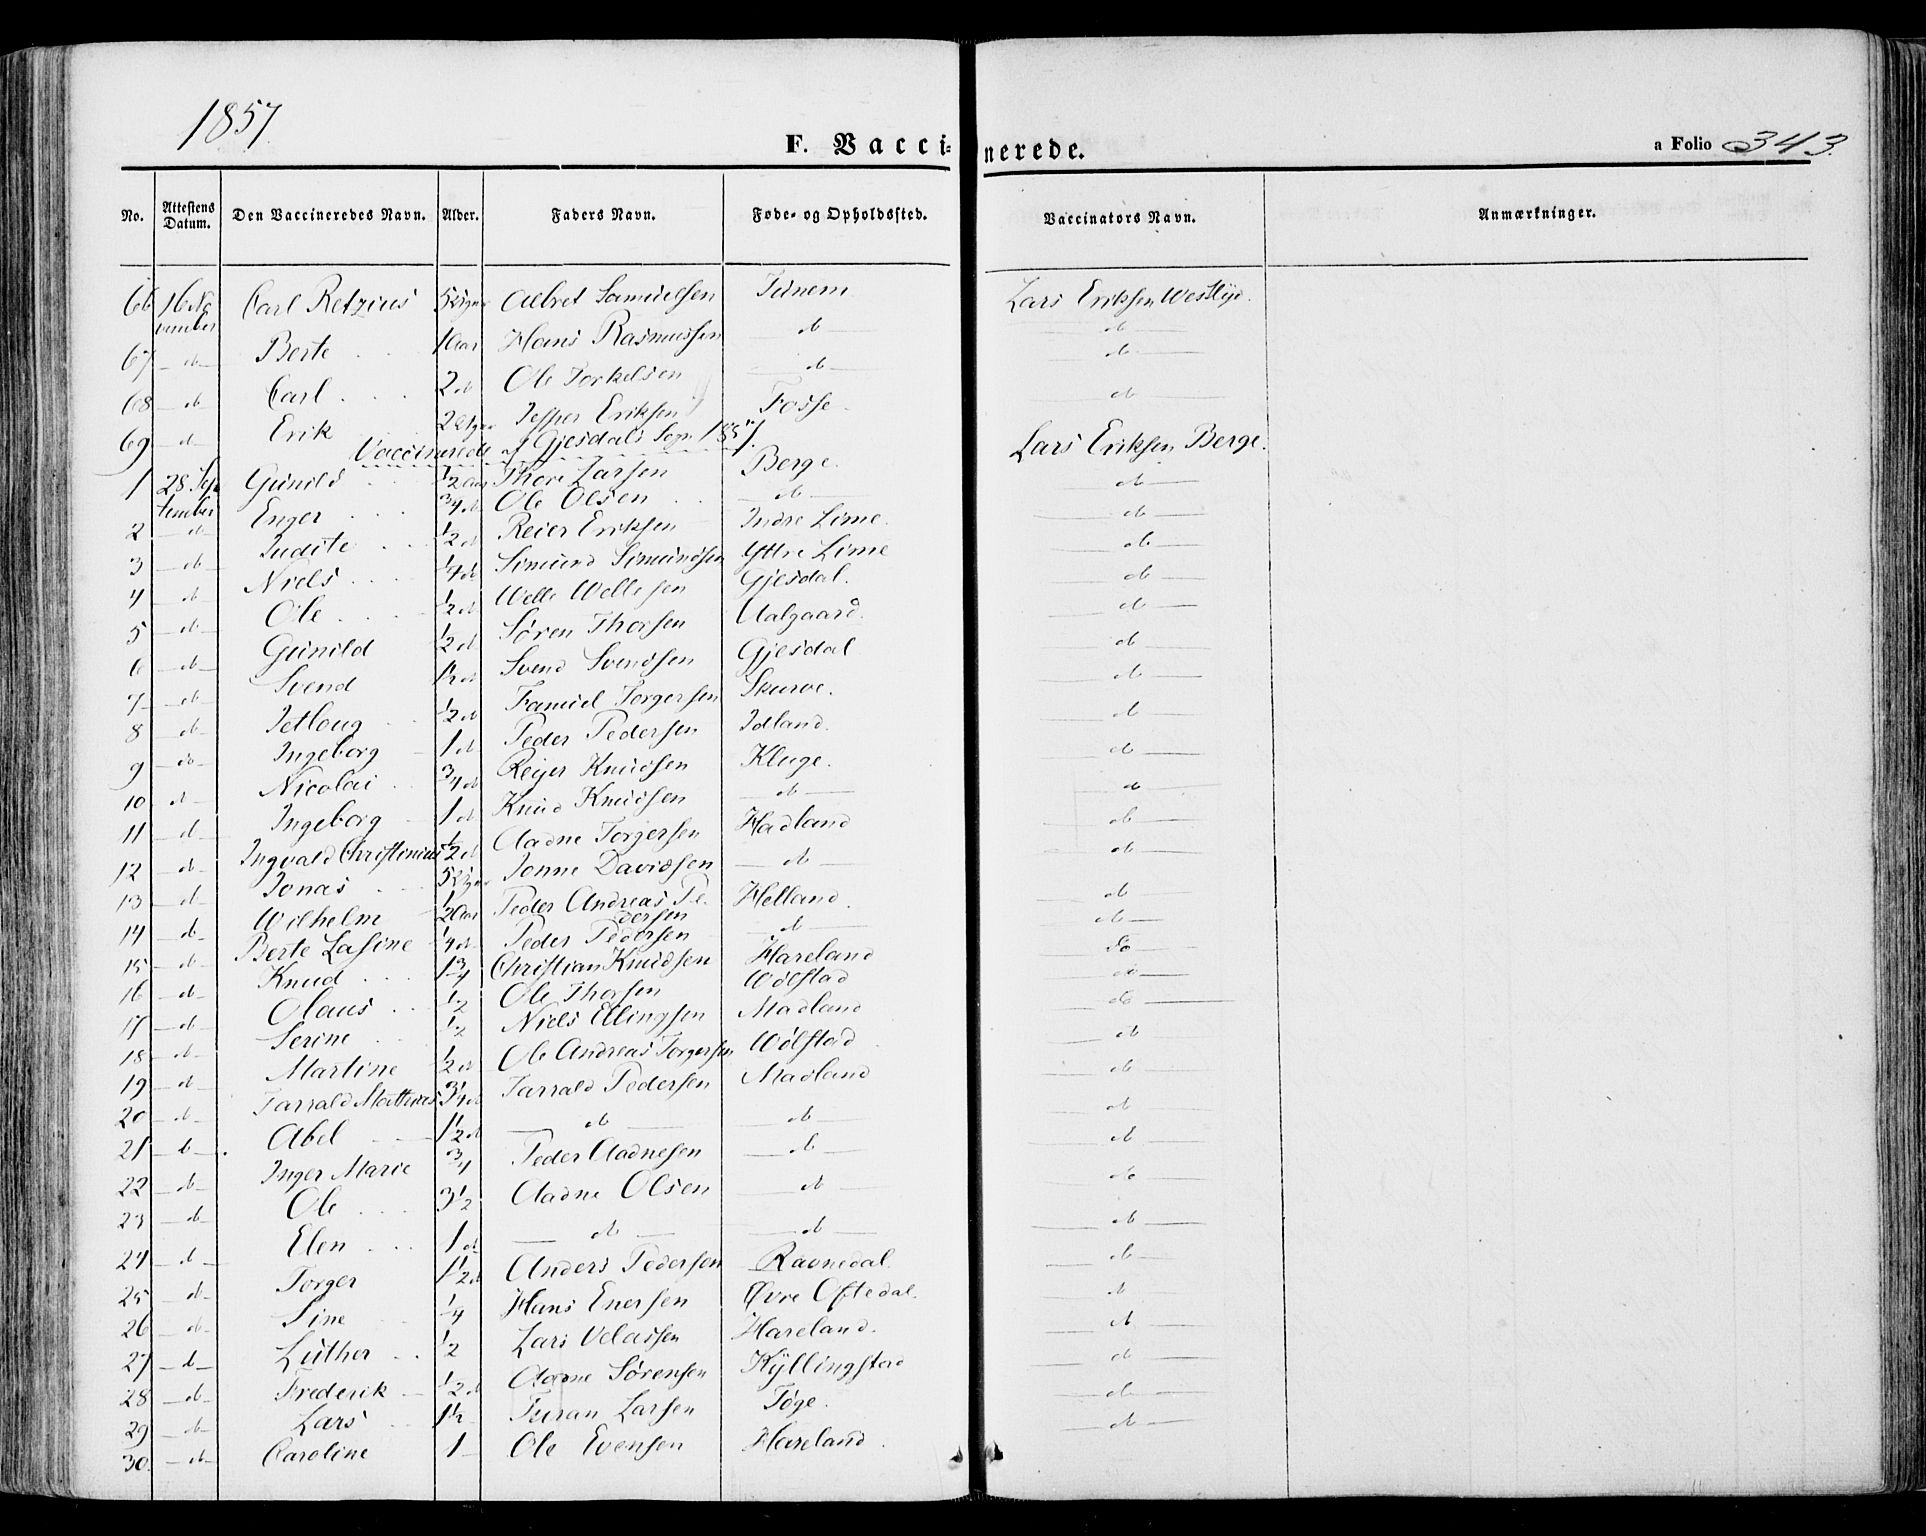 1857.
F. Vaccinerede.
a Folio 343.
No. Attestens Datum. Den Vaccineredes Navn. Alder. Faders Navn. Føde- og Opholdssted. Vaccinators Navn. Anmærkninger.
66 16 November Carl Retzius 5 Uger Albret Samuelsen Tunem Lars Eriksen Westlyd.
67 do Berte 1 Aar Hans Rasmussen do do
68 do Carl 2 do Ole Torkelsen do do
69 do Erik 2 Uger Jesper Eriksen Fosse. do
Vaccinerede af Gjesdals Sogn 1857.
1 28 September Gunild 1/2 Aar Thore Larsen Berge. Lars Eriksen Berge.
2 do Enger 3/4 do Ole Olsen do do
3 do Judite 1/2 do Reier Eriksen Indre Lime. do
4 do Niels 1/4 do Simund Simundsen Yttre Lime do
5 do Ole 1/2 do Welle Wellesen Gjesdal. do
6 do Gunild 1/2 do Søren Thorsen Aalgaard. do
7 do Svend 1/2 do Svend Svendsen Gjesdal do
8 do Jetloug 1/2 do Samuel Torgersen Skurve. do
9 do Ingeborg 1 do Peder Pedersen Idland. do
10 do Nicolai 3/4 do Reijer Knudsen Kluge. do
11 do Ingeborg 1 do Knud Knudsen do do
12 do Ingvald Christinius 1/2 do Aadne Torgersen Hadland do
13 do Jonas 5 Uger Jonne Davidsen do do
14 do Wilhelm 1/2 Aar Peder Andreas Pedersen Helland. do
15 do Berte Lasine 1/4 do Peder Pedersen do do
16 do Knud 1 3/4 Christian Knudsen Hareland do
17 do Olaus 1/2 Ole Thorsen Wølstad do
18 do Serine 1/2 Niels Ellingsen Madland do
19 do Martine 1/2 do Ole Andreas Torgersen Wølstad do
20 do Tarrald Mathias 3 1/4 do Tarrald Pedersen Madland do
21 do Abel 1 1/2 do do do do
22 do Inger Marie 3/4 Peder Aadnesen do do
23 do Ole 3 1/2 Aadne Olsen do do
24 do Elen 1 do do do do
25 do Torger 1 1/2 do Anders Pedersen Ravnedal. do
26 do Sine 1/4 Hans Enersen Øvre Oftedal. do
27 do Luther 1/2 Lars Velassen Hareland. do
28 do Frederik 1/2 do Aadne Sørensen Kyllingstad do
29 do Lars 1 1/2 Turan Larsen Tøge. do
30. do Caroline 1 Ole Evensen Hareland. do